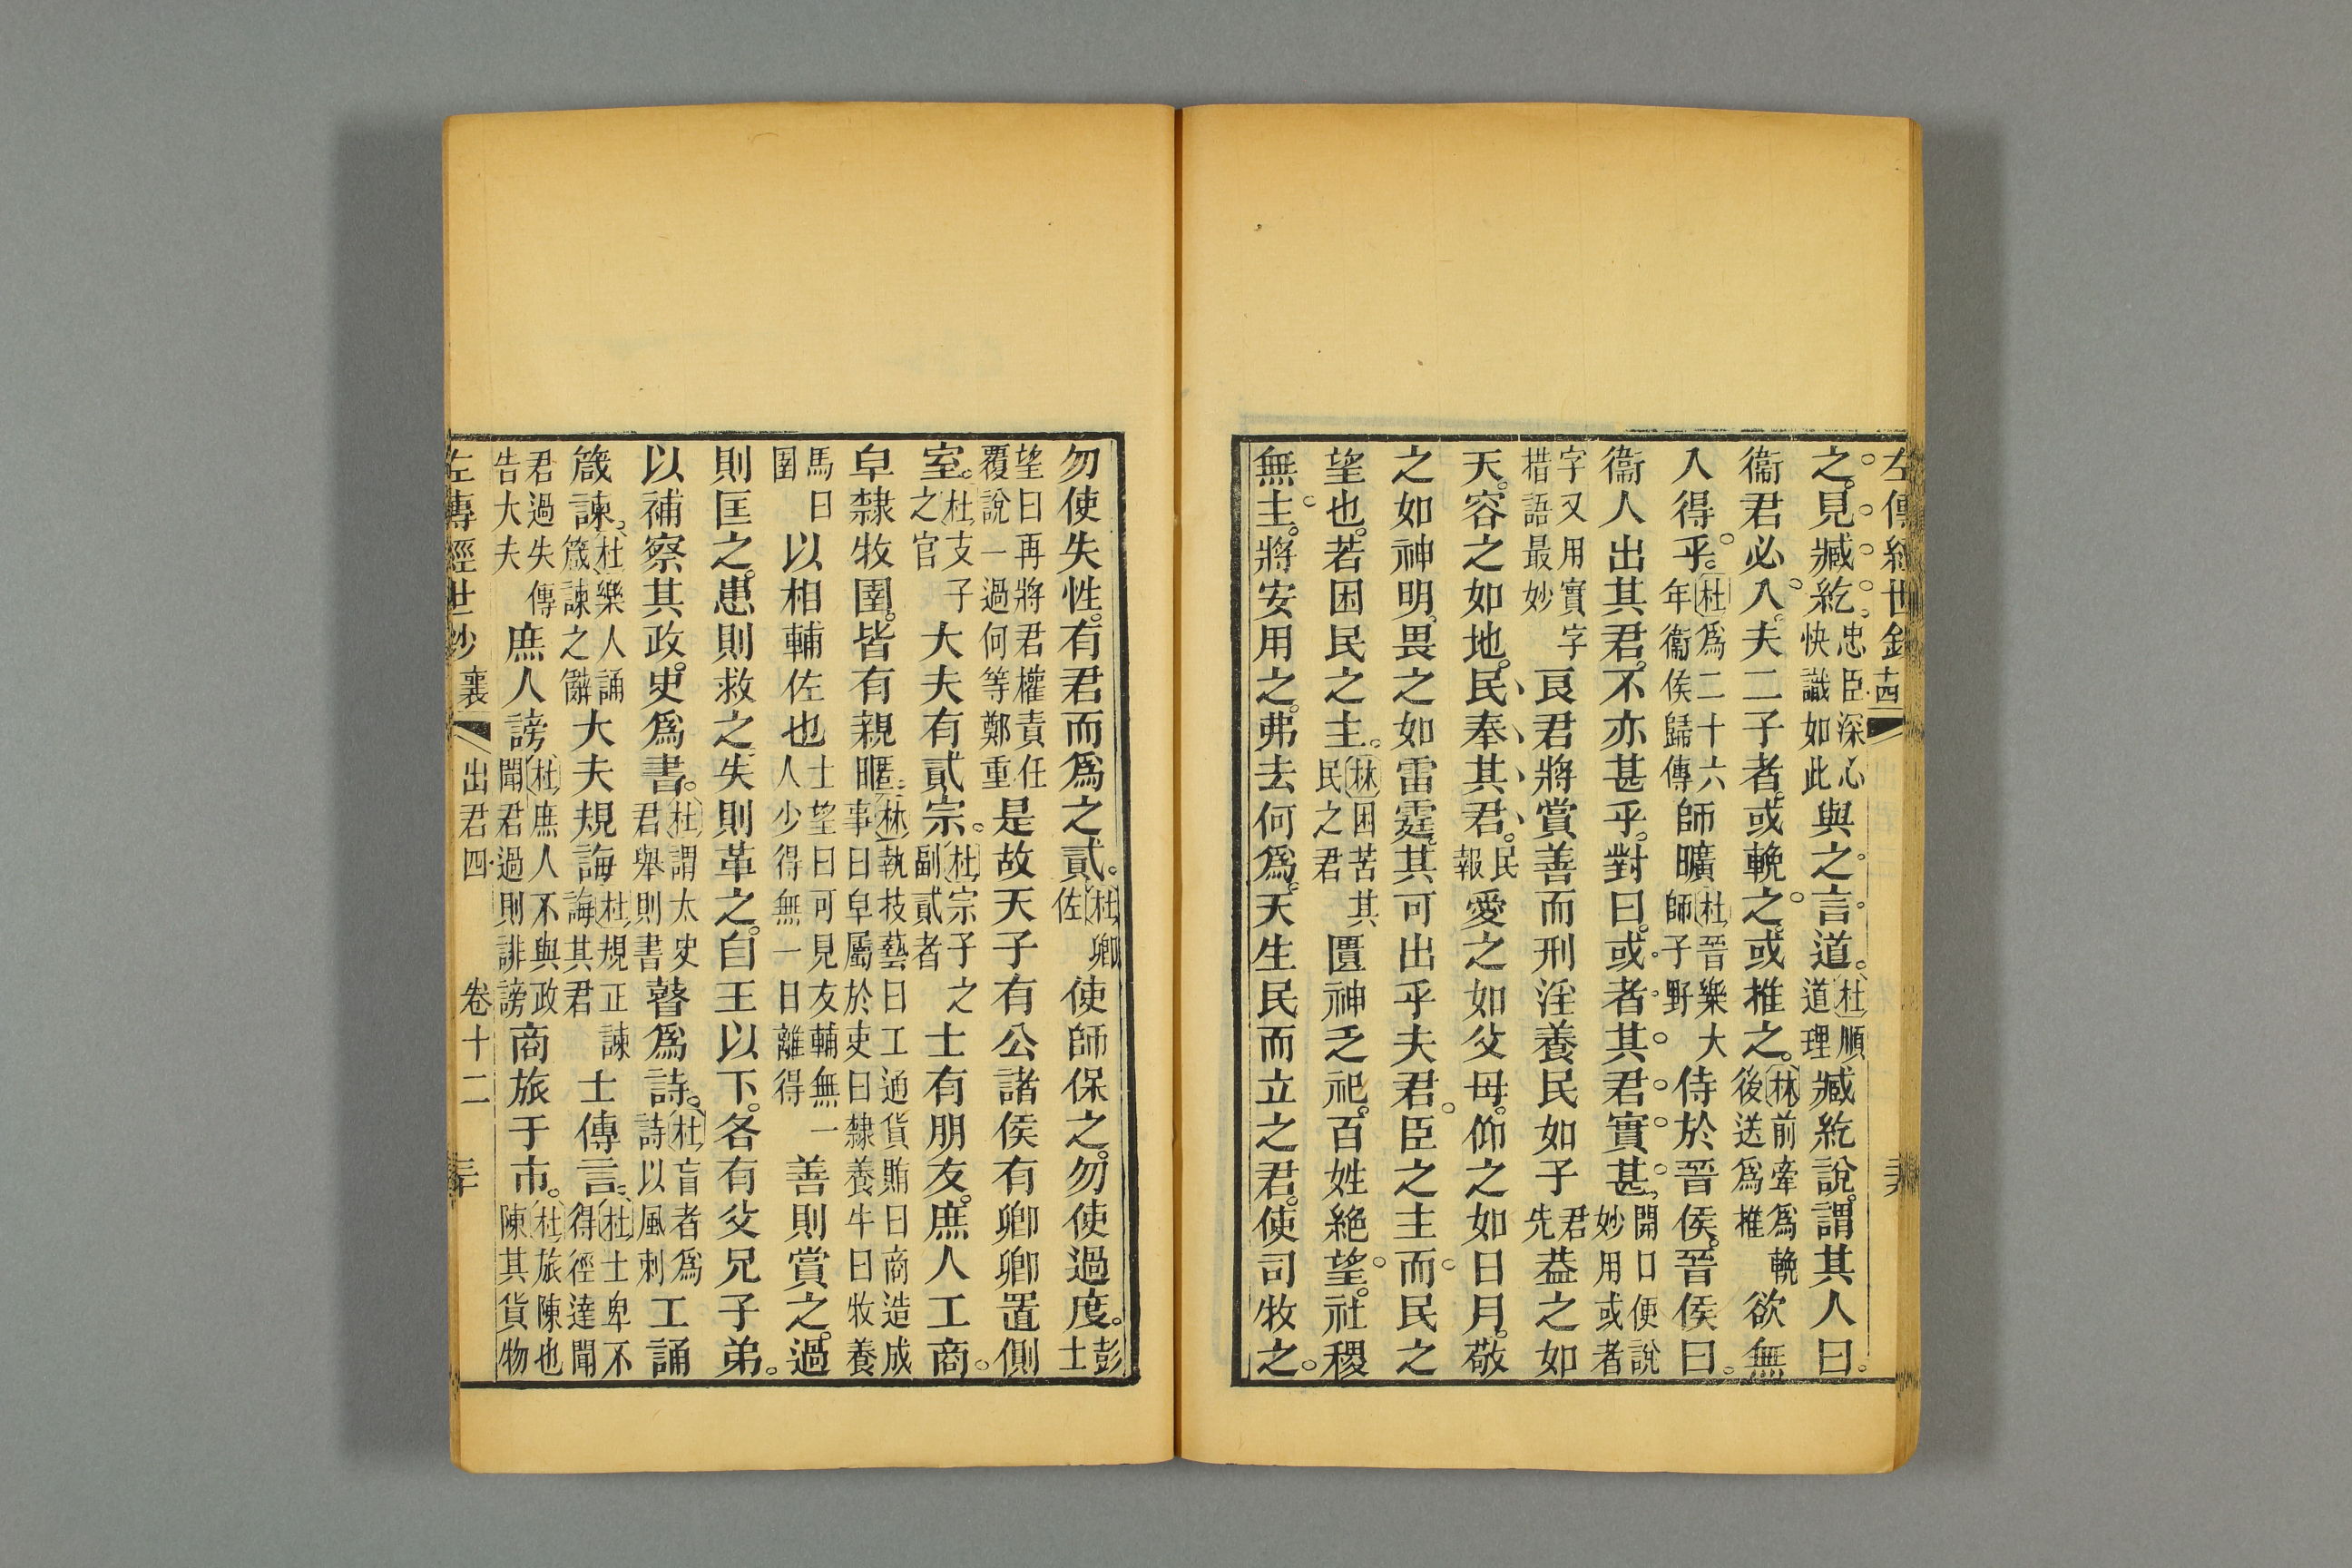 左傳經世鈔 十四
之。見臧紇。忠臣深心快識如此與之言。道。杜順道理臧紇說。謂其人曰。
衞君必入。夫二子者。或輓之。或推之。林前牽爲輓後送爲推欲無
入得乎。杜爲二十六年衞侯歸傳師曠杜晉樂大師子野侍於晉侯。晉侯曰。
衞人出其君。不亦甚乎。對曰。或者其君實甚。開口便說妙用或者
字又用實字措語最妙良君將賞善而刑淫養民如子君先葢之如
天。容之如地。民奉其君。民報愛之如父母。仰之如日月。敬
之如神明。畏之如雷霆。其可出乎夫君。臣之主而民之
望也。若困民之主。林困苦其民之君匱神乏祀。百姓絶望。社稷
無主。將安用之。弗去何爲。天生民而立之君。使司牧之。
勿使失性。有君而爲之貳。杜卿佐使師保之。勿使過度。彭士
望曰再將君權責任覆說一過何等鄭重是故天子有公諸侯有卿卿置側
室。杜支子之官大夫有貳宗。杜宗子之副貳者士有朋友。庶人工商。
皁隸牧圉。皆有親暱。林執技藝曰工通貨賄曰商造成事曰皁屬於吏曰隸養牛曰牧養
馬曰圉以相輔佐也士望曰可見友輔無一人少得無一日離得善則賞之。過
則匡之。患則救之失則革之。自王以下。各有父兄子弟。
以補察其政。史爲書。杜謂太史君舉則書瞽爲詩。杜盲者爲詩以風刺工誦
箴諫。杜樂人誦箴諫之辭大夫規誨杜規正諫誨其君士傳言。杜士卑不得徑達聞
君過失傳告大夫庶人謗杜庶人不與政聞君過則誹謗商旅于市。杜旅陳也陳其貨物
左傳經世鈔 襄 出君四 卷十二